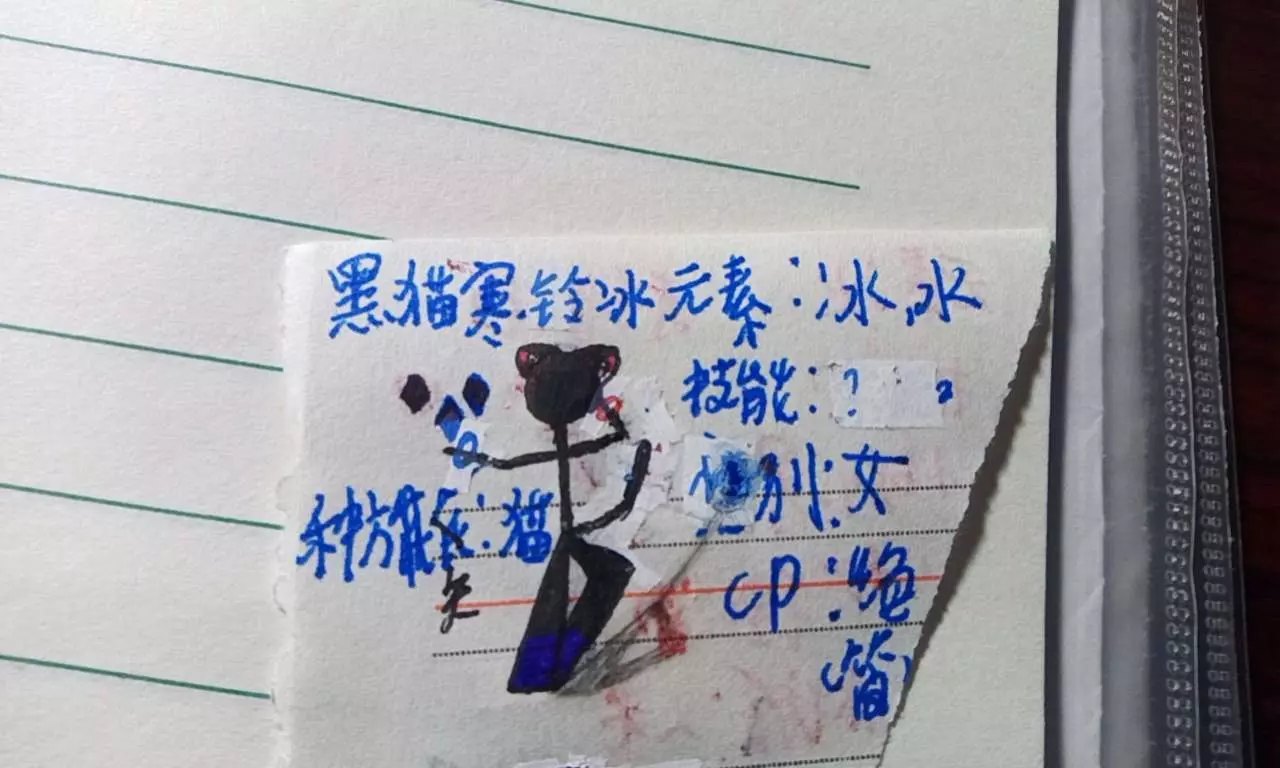 黑猫寒铃冰元素:冰,水
技能:?
性别:女
种族:猫
cp:绝
笛